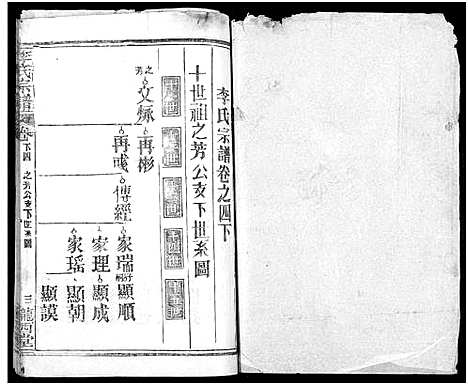 李氏宗譜卷之四下
十世祖之芳公支下世系圖
之芳
文㷆
再彬
再彧
傳經
家瑞
顯順
家理
顯成
家瑤
顯朝
顯謨
李氏宗譜
卷下四
之芳公支下世系圖
三
隴西堂